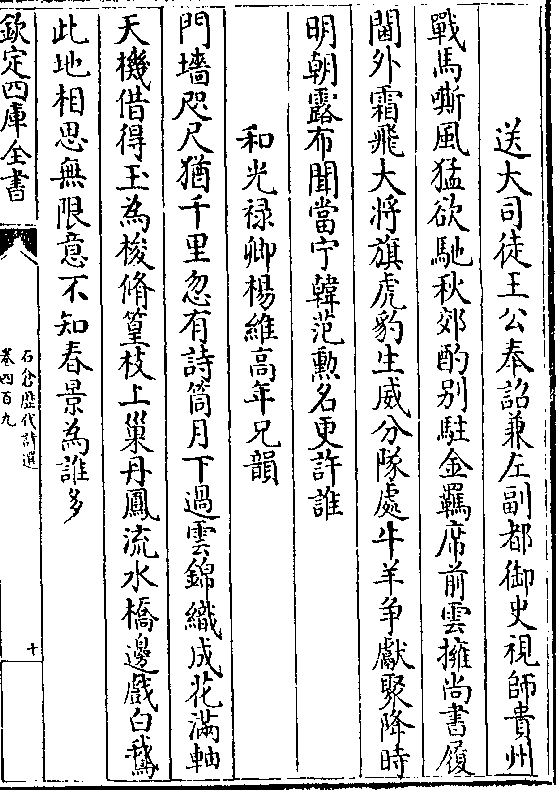 送大司徒王公奉詔兼左副都御史視師貴州
戰馬嘶風猛欲馳秋郊酌别駐金羈席前雲擁尚書履
閫外霜飛大将旗虎豹生威分隊處牛羊争獻聚降時
明朝露布聞當宁韓范勲名更許誰
和光禄卿楊維高年兄韻
門墻咫尺猶千里忽有詩筒月下過雲錦織成花滿軸
天機借得玉為梭脩篁枝上巢丹鳳流水橋邊戲白鵞
此地相思無限意不知春景為誰多
欽定四庫全書
石倉歴代詩選
卷四百九
十